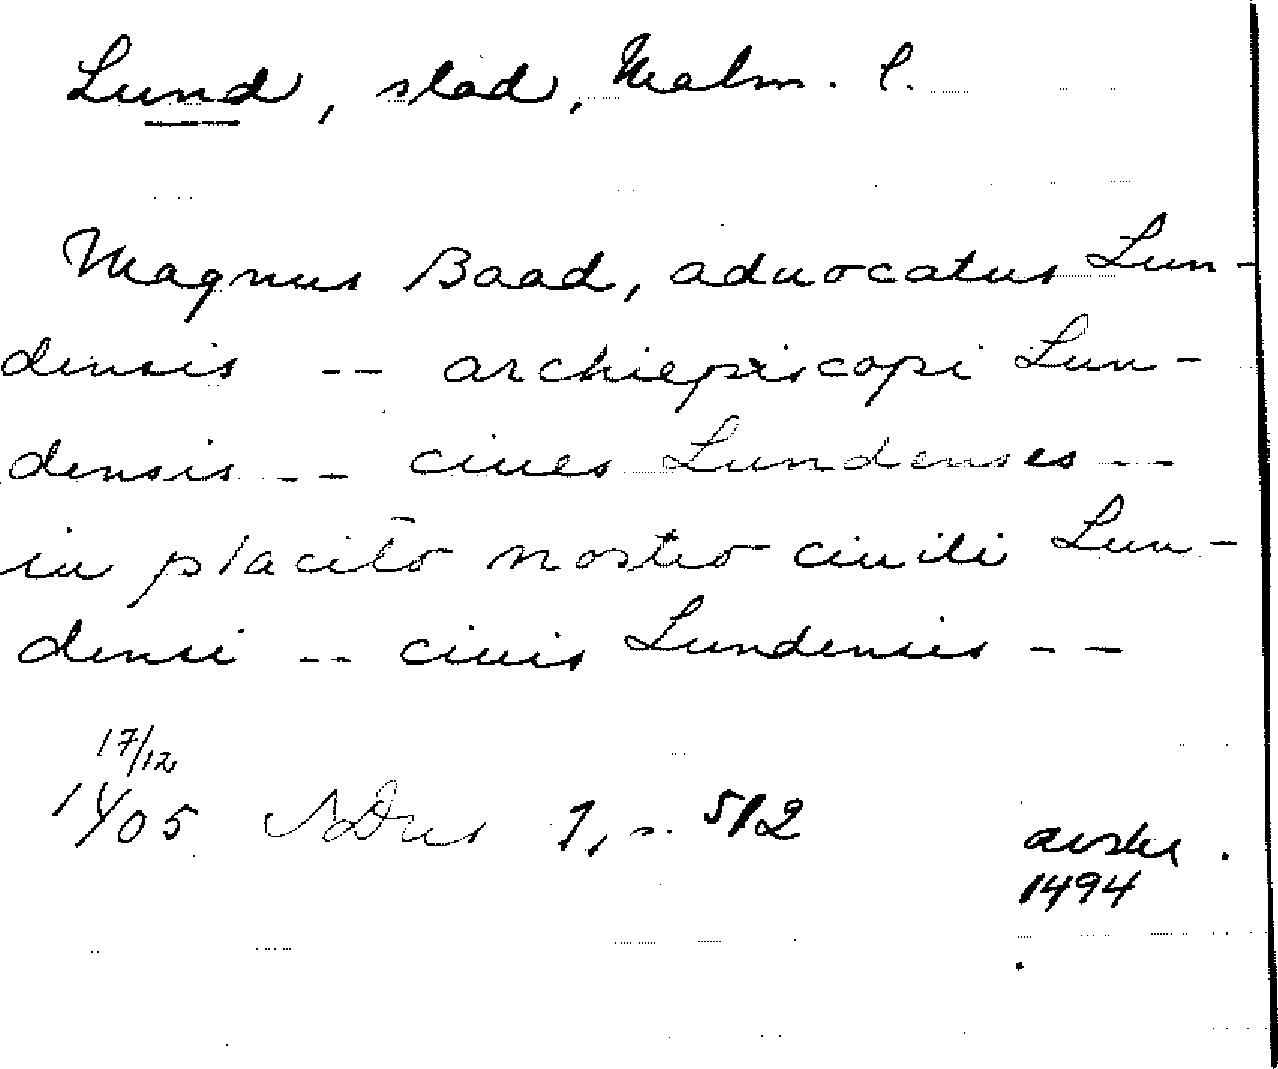 Lund, stad, Malm. l.
Magnus Baad, aduocatus Lun-
densis -- archiepiscopi Lun-
densis -- ciues Lundenses --
in placito nostro ciuili Lun-
densi -- ciuis Lundensis --
17/12
1405 NDns 1, s. 512
avskr.
1494